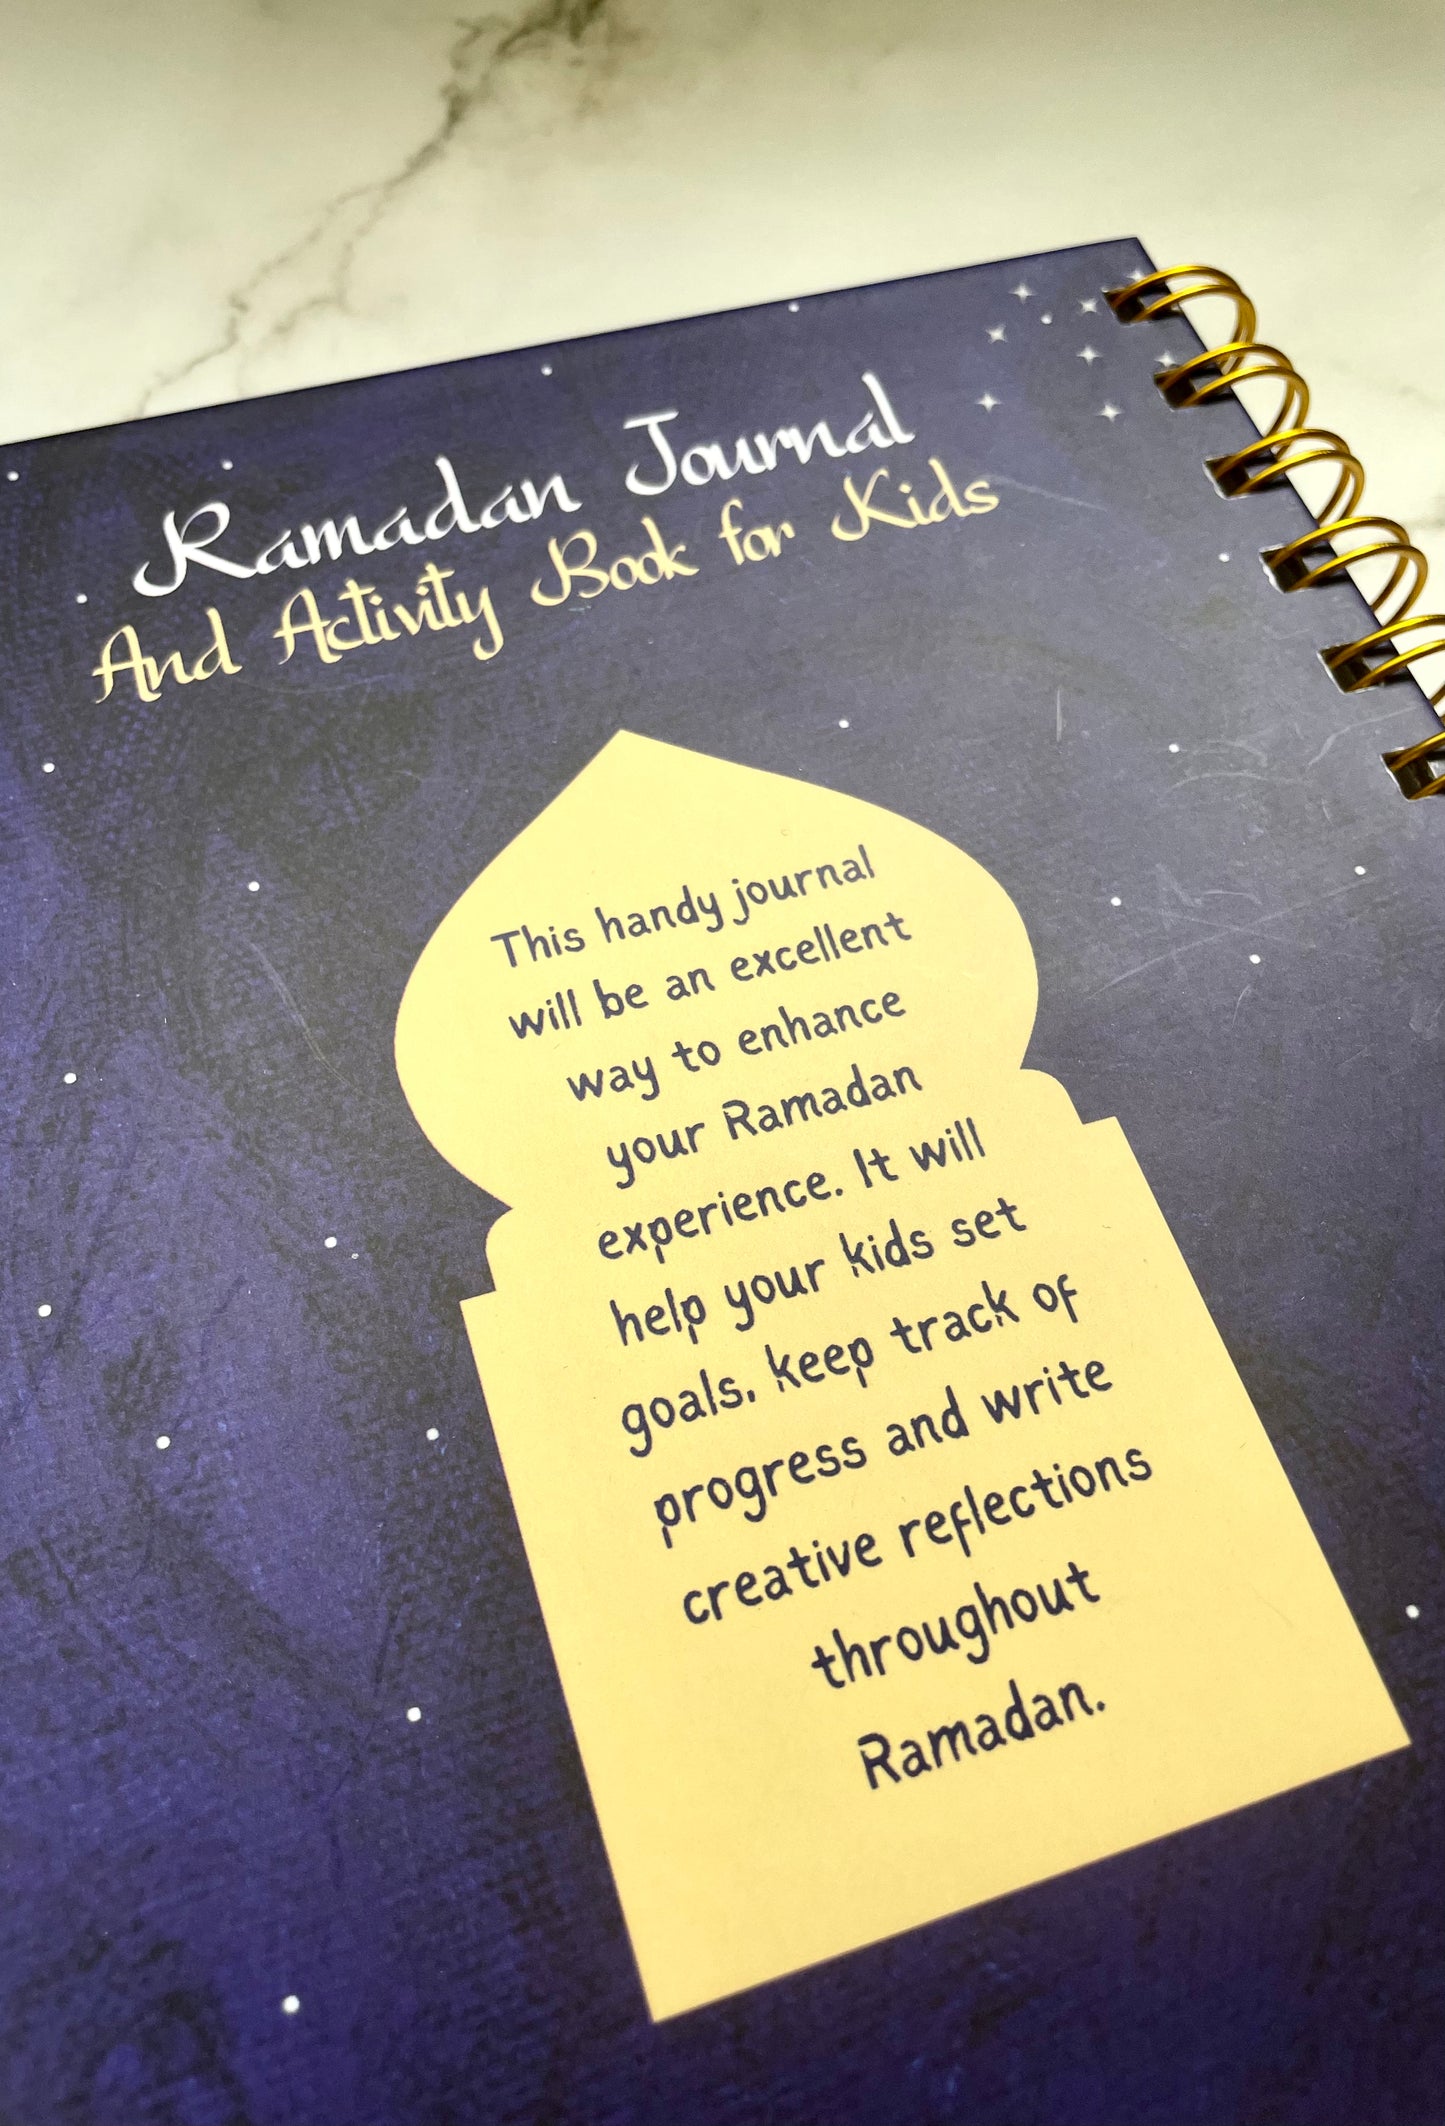 Ramadan Journal
And Activity Book for Kids
This handy journal
will be an excellent
way to enhance
your Ramadan
experience. It will
help your kids set
goals, keep track of
progress and write
creative reflections
throughout
Ramadan.